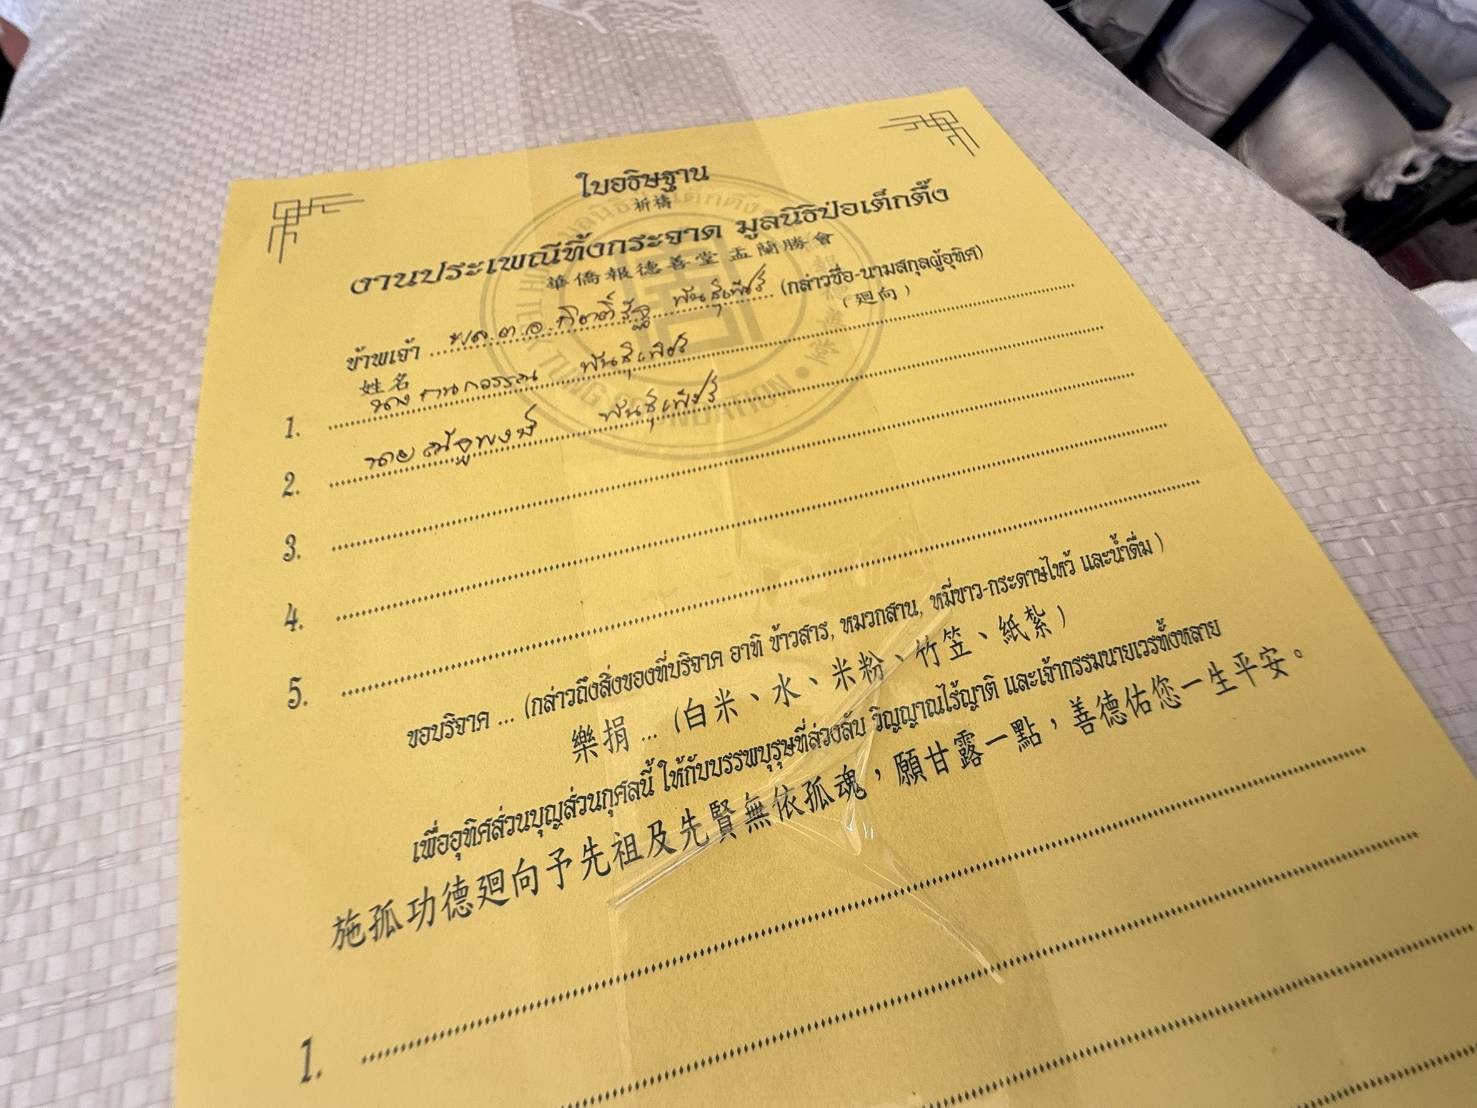 ใบอธิษฐาน
祈禱
งานประเพณีทิ้งกระจาด มูลนิธิป่อเต็กตึ๊ง
華僑報德善堂盂蘭勝會
ข้าพเจ้า พล.ต.อ. กิตติ์รัฐ พันธุ์เพ็ชร์ (กล่าวชื่อ-นามสกุลผู้อุทิศ)
姓名 (廻向)
1. นาง พันธุ์เพ็ชร์
2. นาย ณัฐพงษ์ พันธุ์เพ็ชร์
3.
4.
5.
ขอบริจาค ... (กล่าวถึงสิ่งของที่บริจาค อาทิ ข้าวสาร, หมวกสาน, หมี่ขาว-กระดาษไหว้ และน้ำดื่ม)
樂捐 ... (白米、水、米粉、竹笠、紙紮)
เพื่ออุทิศส่วนบุญส่วนกุศลนี้ ให้กับบรรพบุรุษที่ล่วงลับ วิญญาณไร้ญาติ และเจ้ากรรมนายเวรทั้งหลาย
施孤功德廻向予先祖及先賢無依孤魂，願甘露一點，善德佑您一生平安。
1.